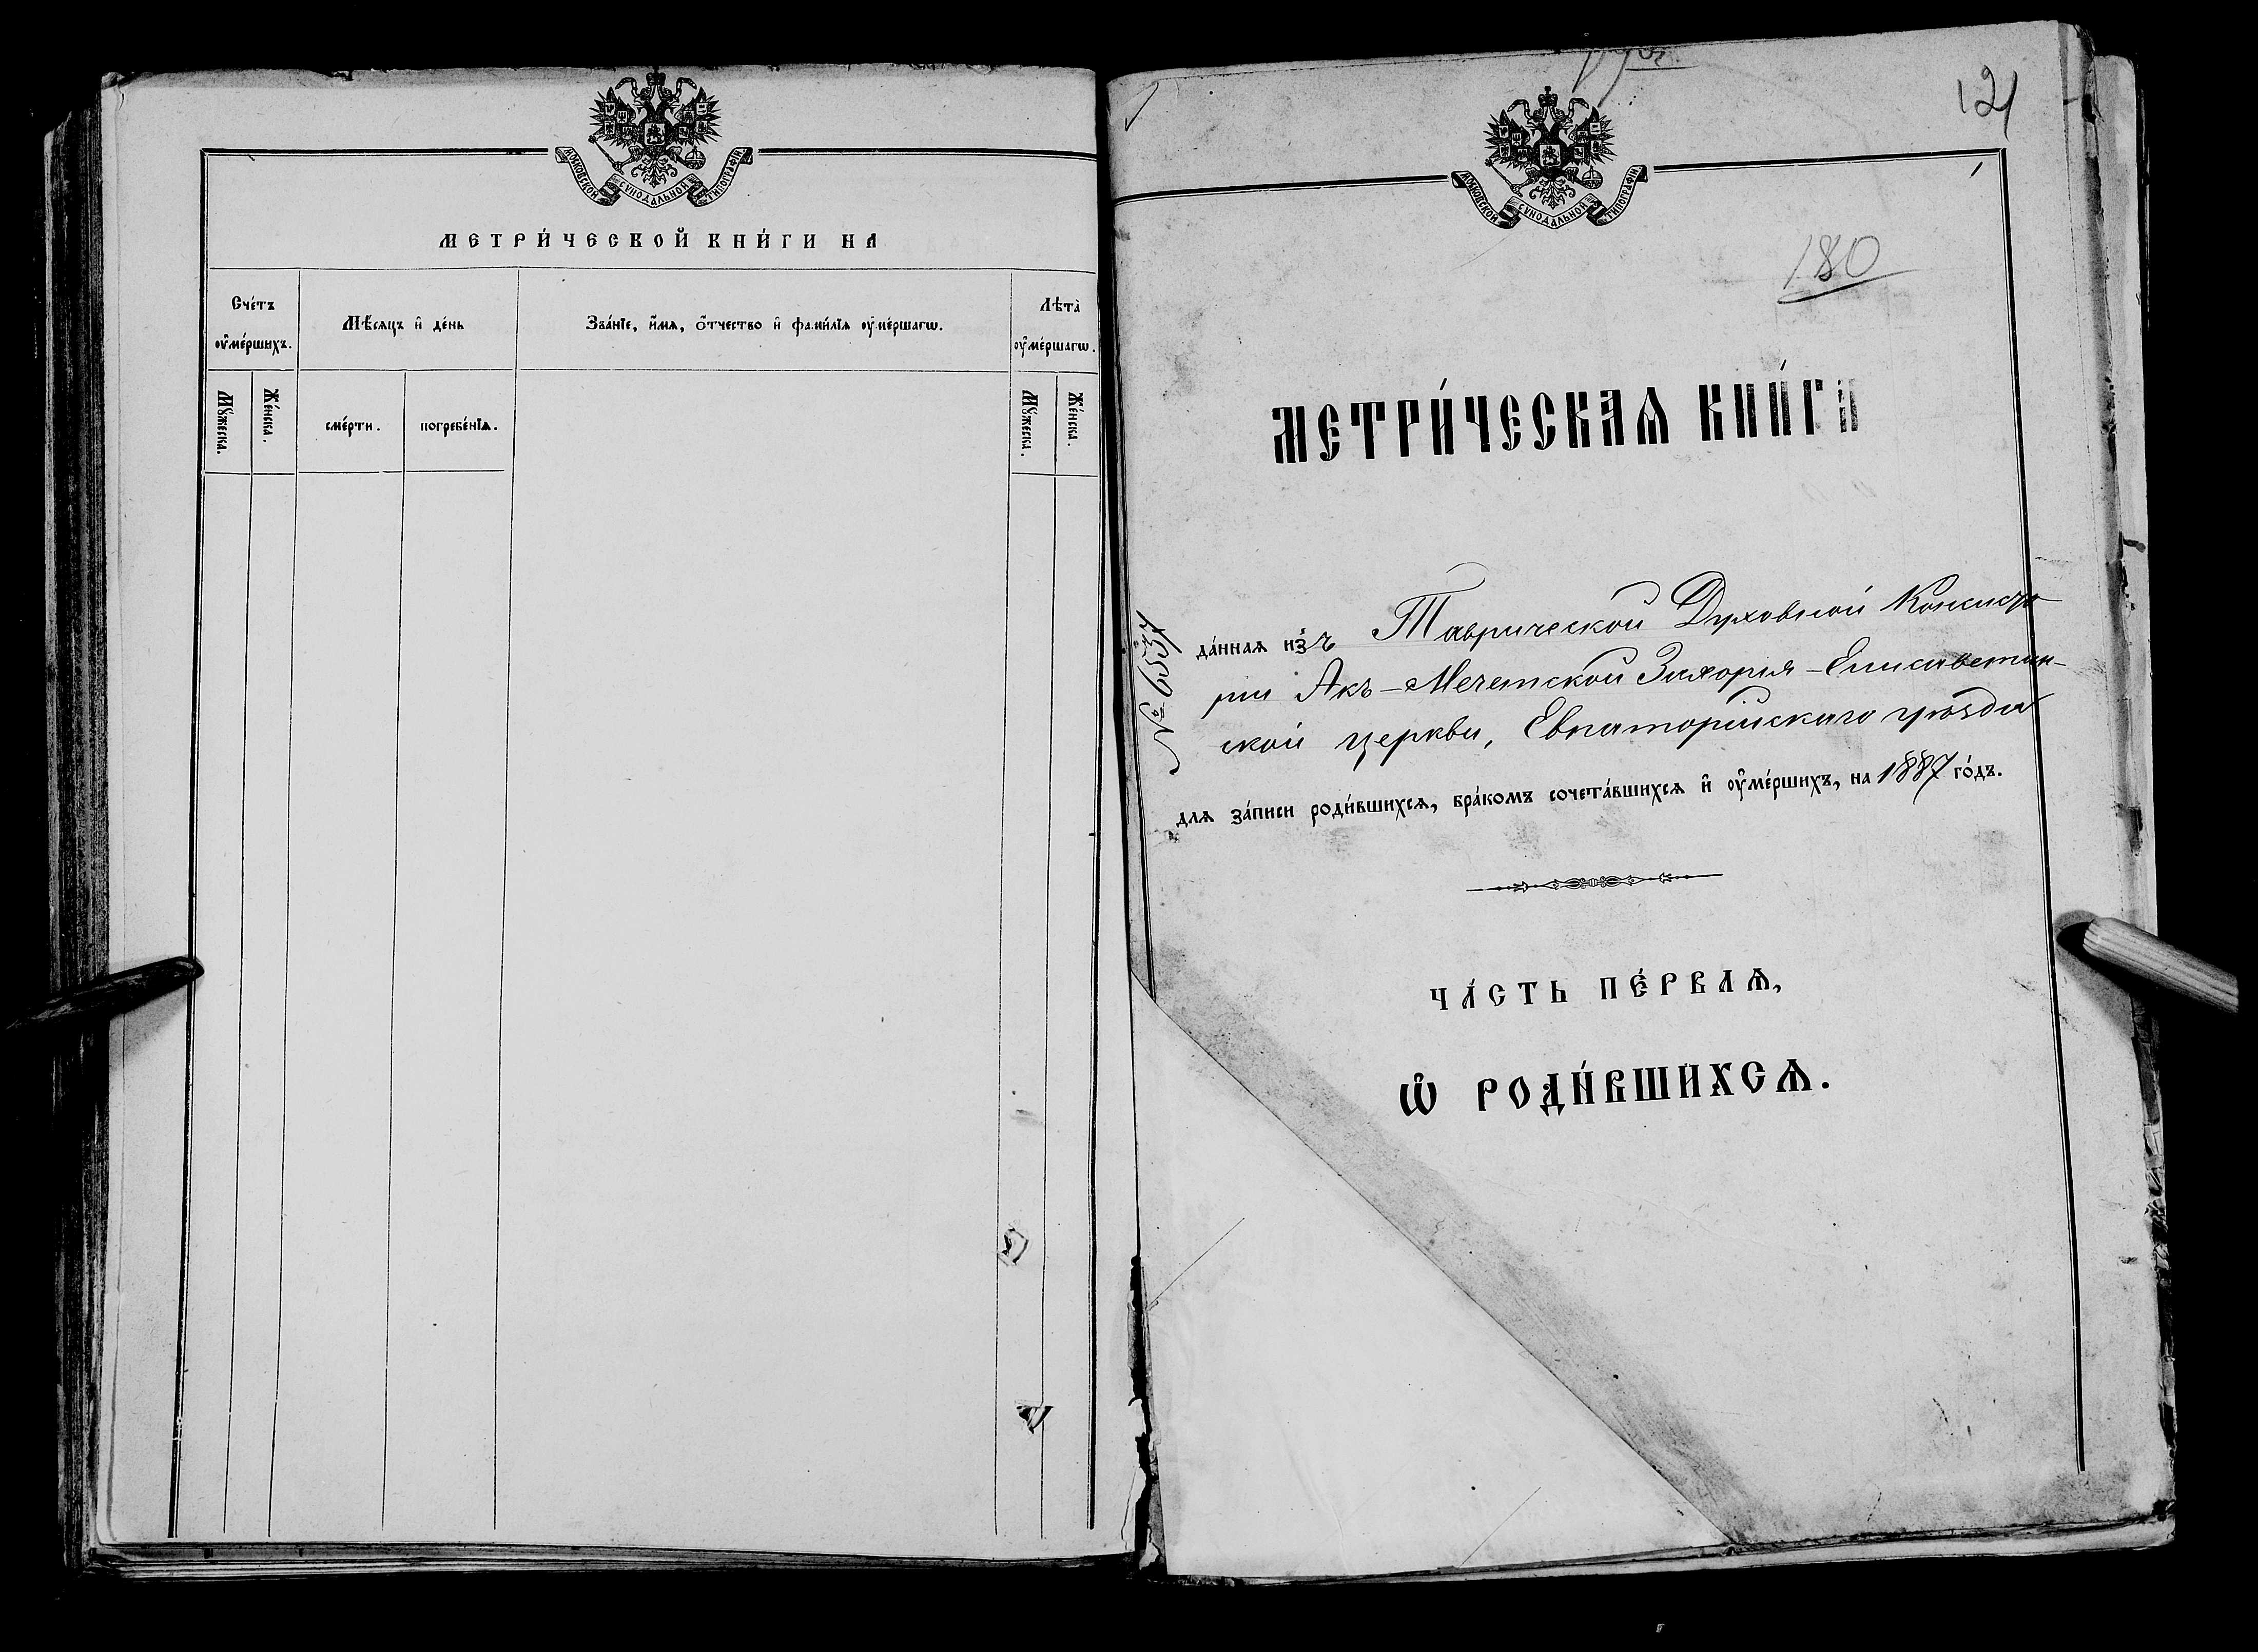 МОСКОВСКОЙ СѴНОДАЛЬНОЙ ТИПОГРАФІИ.
МЕТРИ́ЧЕСКОЙ КНИ́ГИ НА
Сче́тъ ᲂу҆ме́ршихъ.
Мѣ́сяцъ и҆ де́нь
Зва́нїе, и҆́мѧ, ѻ҆́тчество и҆ фами́лїѧ ᲂу҆ме́ршагѡ.
Лѣта̀ ᲂу҆ме́ршагѡ.
Мꙋ́жеска.
Же́нска.
сме́рти.
погребе́нїѧ.
Мꙋ́жеска.
Же́нска.
121
МОСКОВСКОЙ СѴНОДАЛЬНОЙ ТИПОГРАФІИ.
180
МЕТРИ́ЧЕСКАѦ КНИ́ГА
№ 6537
да́ннаѧ и҆з̾ъ Таврической Духовной Консисто
ріи Акъ-Мечетской Захаріи-Елисаветин-
ской церкви, Евпаторійскаго уѣзда
длѧ за́писи роди́вшихсѧ, бра́комъ сочета́вшихсѧ и҆ ᲂу҆ме́ршихъ, на 1887 го́дъ.
ЧА́СТЬ ПЕ́РВАѦ,
Ѡ҆ РОДИ́ВШИХСѦ.